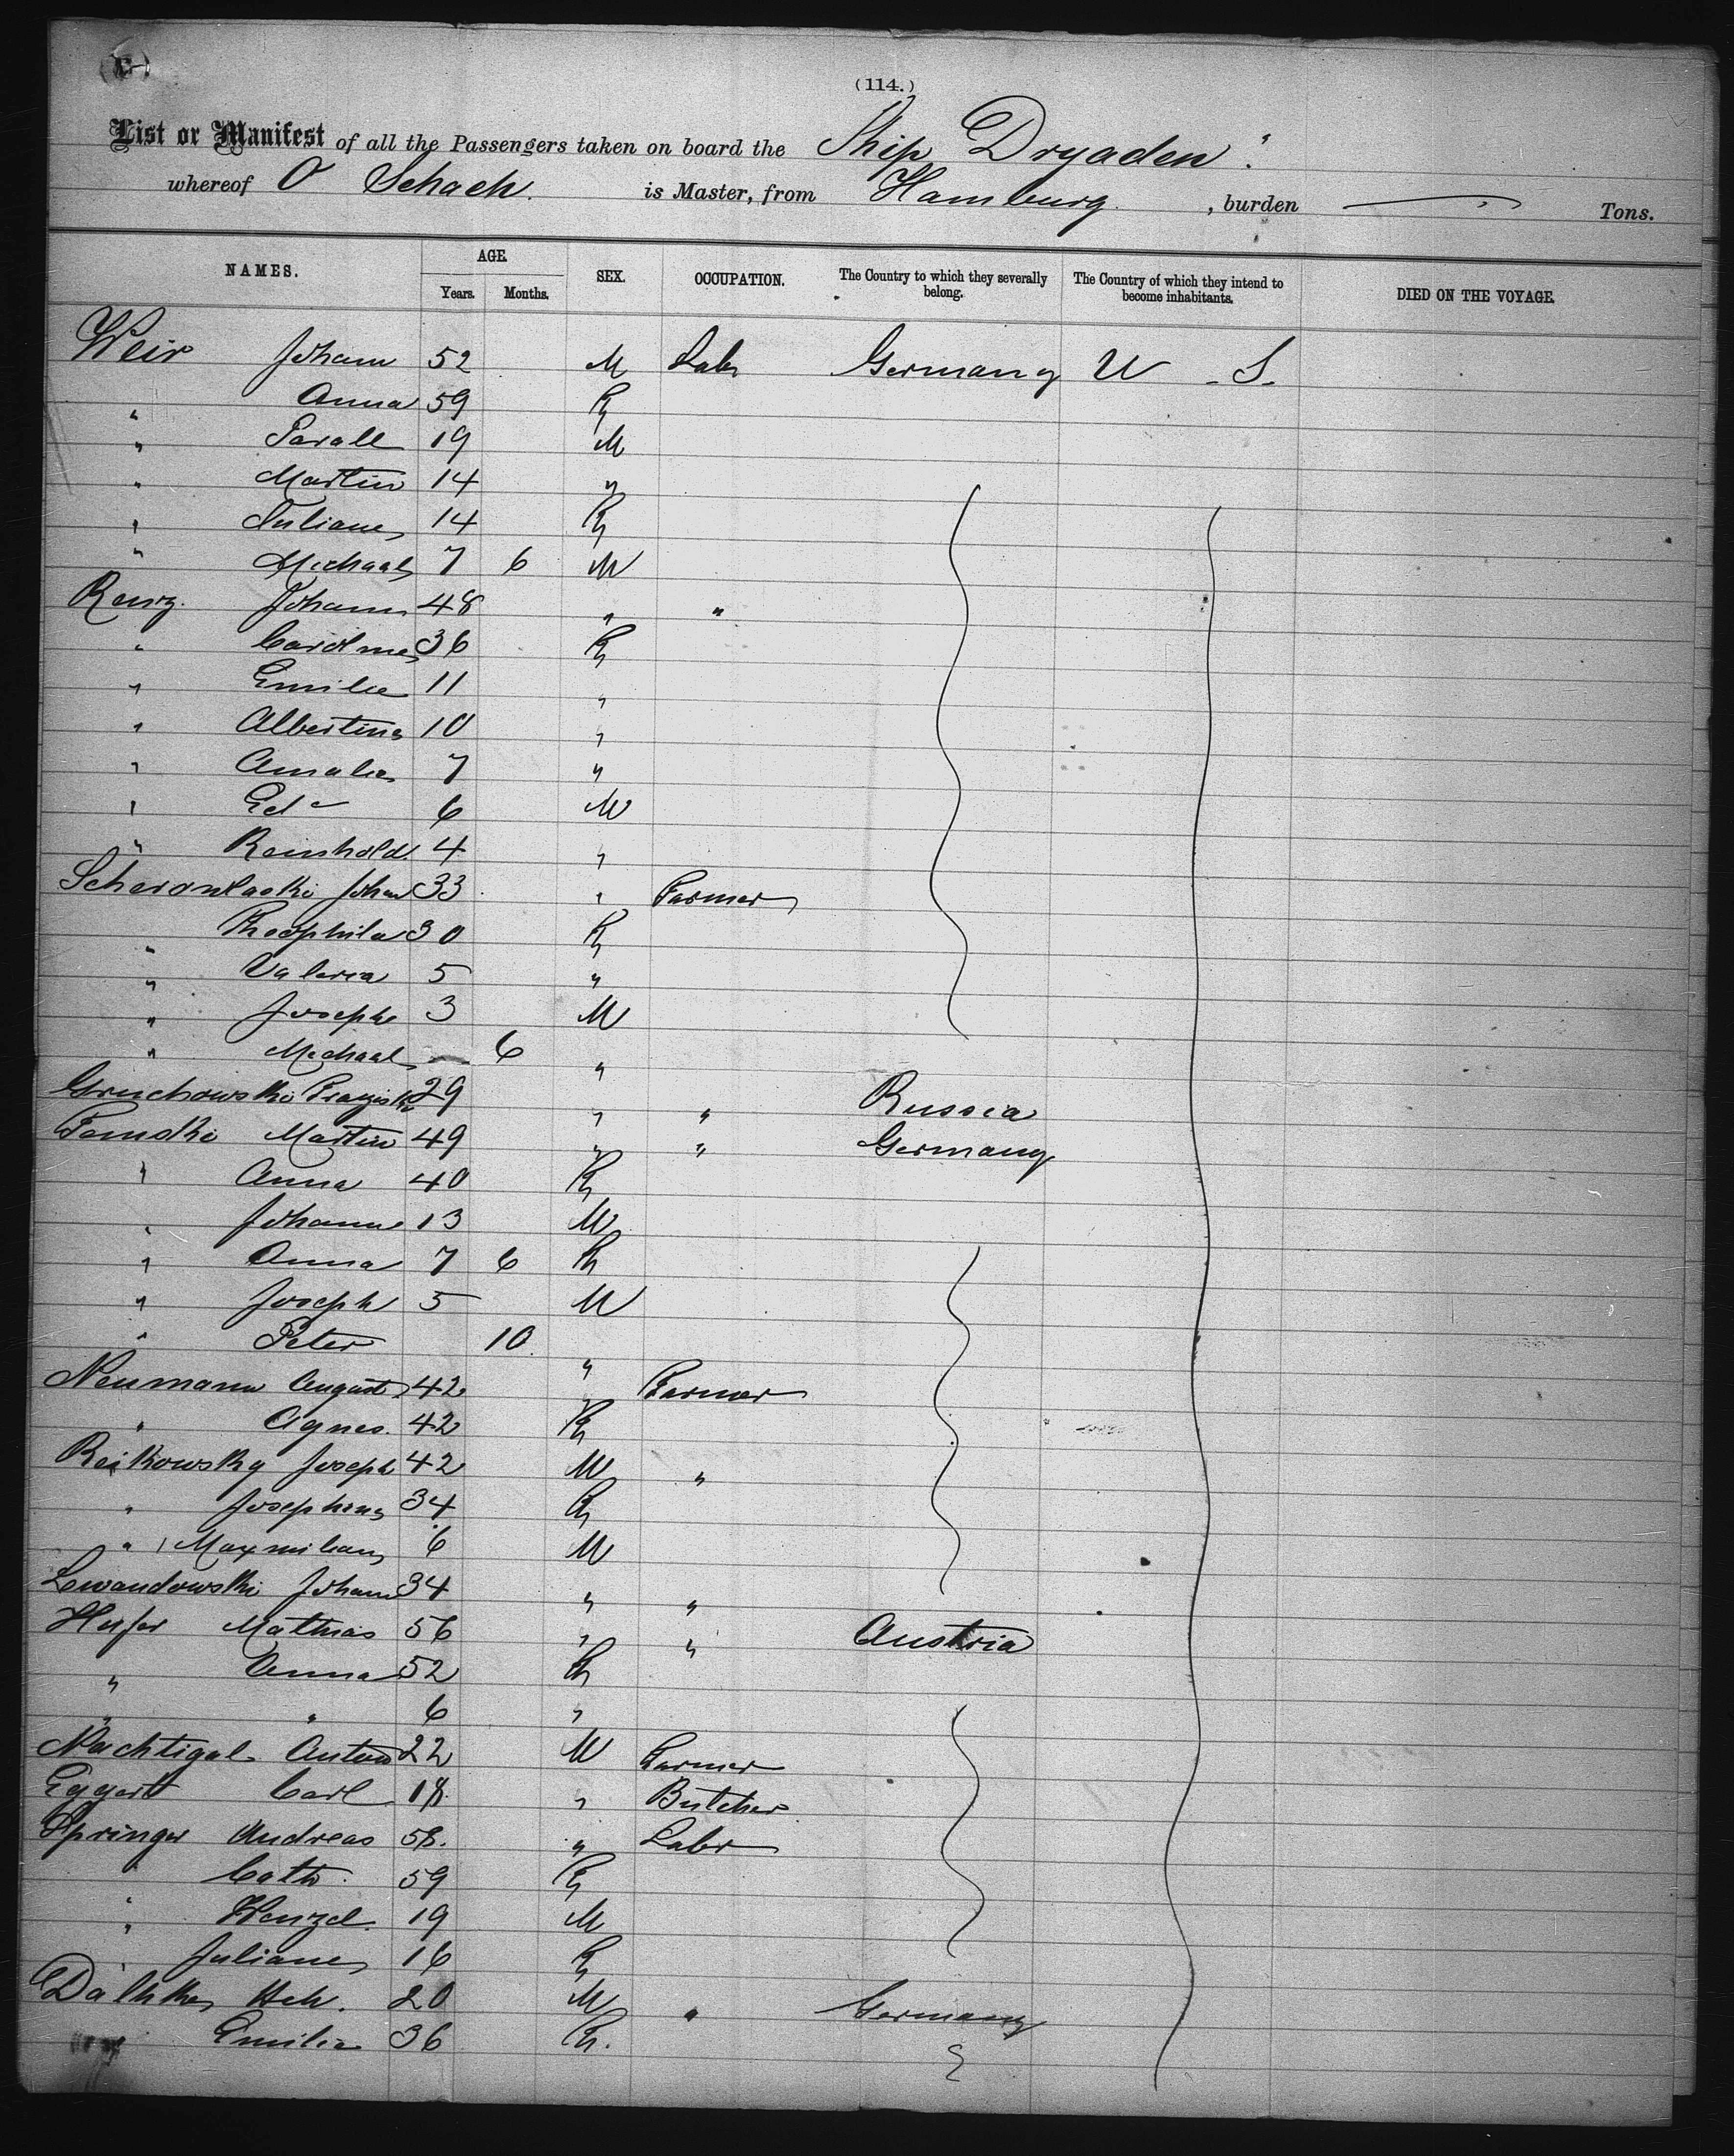 (114.)
List or Manifest of all the Passengers taken on board the Ship Dryaden
whereof O Schach. is Master, from Hamburg. , burden — Tons.
NAMES. AGE. SEX. OCCUPATION. The Country to which they severally belong. The Country of which they intend to become inhabitants. DIED ON THE VOYAGE.
Years. Months.
Weir Johann 52 M Labr Germany U.S.
" Anna 59 F
" 19 M
" Martin 14 "
" Juliane 14 F
" Michael 7 6 M
Johann 48 " "
" Caroline 36 F
" Emilie 11 "
" Albertine 10 "
" Amalie 7 "
" Ed 6 M
" Reinhold. 4 "
Johan 33 " Farmer
" Theophila 30 F
" Valeria 5 "
" Joseph 3 M
" Michael — 6 "
Gruchowski 29 " " Russia
Martin 49 " " Germany
" Anna 40 F
" Johann 13 M
" Anna 7 6 F
" Joseph 5 M
" Peter 10 "
Neumann August 42 Farmer
" Agnes. 42 F
Reikowsky Joseph 42 M "
" Josephine 34 F
" Maxmilian 6 M
Lewandowski Johann 34 " "
Hufer Mathias 56 " " Austria
" Anna 52 F
" " 6 "
Nachtigal Anton 22 M Farmer
Eggert Carl 18 " Butcher
Springer Andreas 58. " Labr
" Cath. 59 F
" Wenzel. 19 M
" Juliane 16 F
Dahlke Hch. 20 M " Germany
" Emilie 36 F.